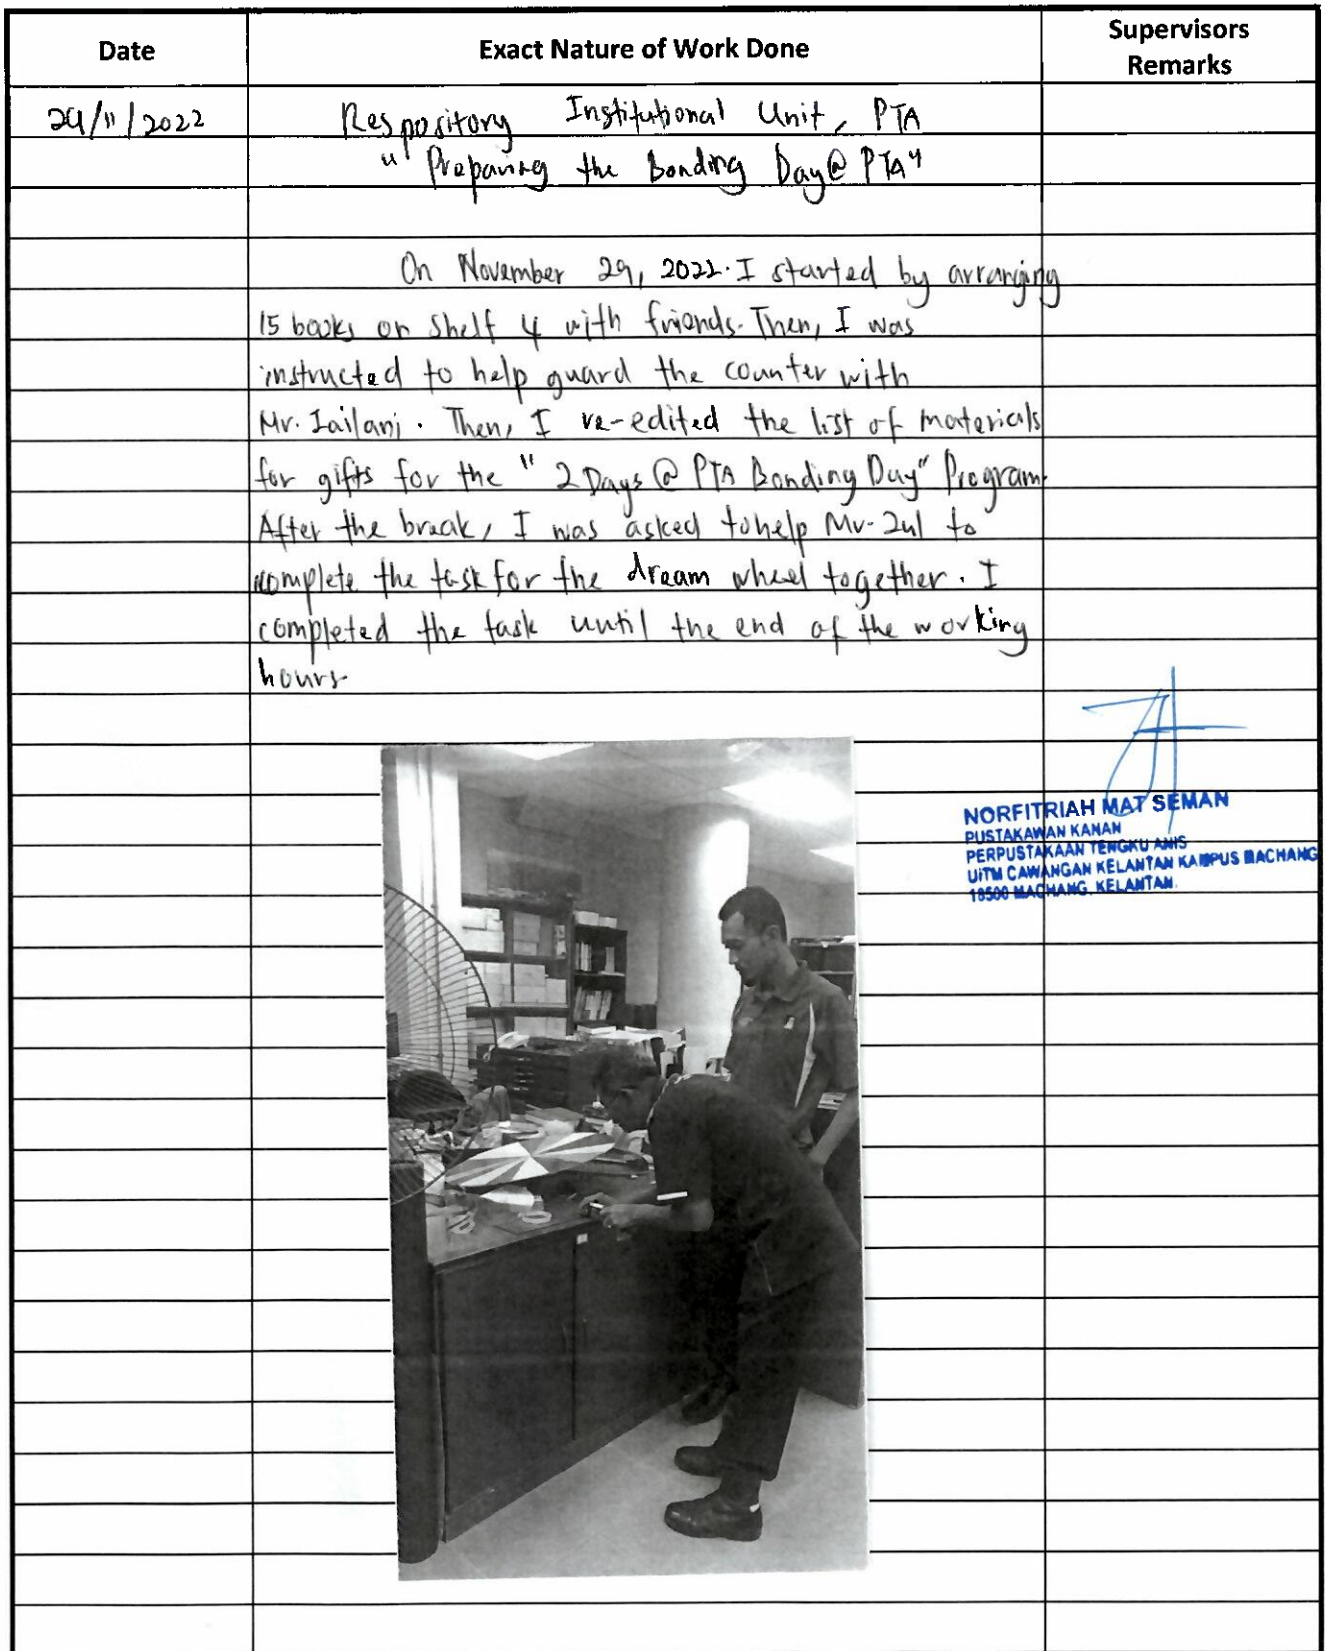 Date
Exact Nature of Work Done
Supervisors
Remarks
29/11/2022
Respository Institutional Unit, PTA
"Preparing the Bonding Day@ PTA"
On November 29, 2022. I started by arranging
15 books on shelf 4 with friends. Then, I was
instructed to help guard the counter with
Mr. Zailani. Then, I re-edited the list of matericals
for gifts for the "2 Days @ PTA Bonding Day" Program.
After the break, I was asked to help Mr. Zul to
complete the task for the dream wheel together. I
completed the task until the end of the working
hours.
NORFITRIAH MAT SEMAN
PUSTAKAWAN KANAN
PERPUSTAKAAN TENGKU ANIS
UiTM CAWANGAN KELANTAN KAMPUS MACHANG
18500 MACHANG, KELANTAN.